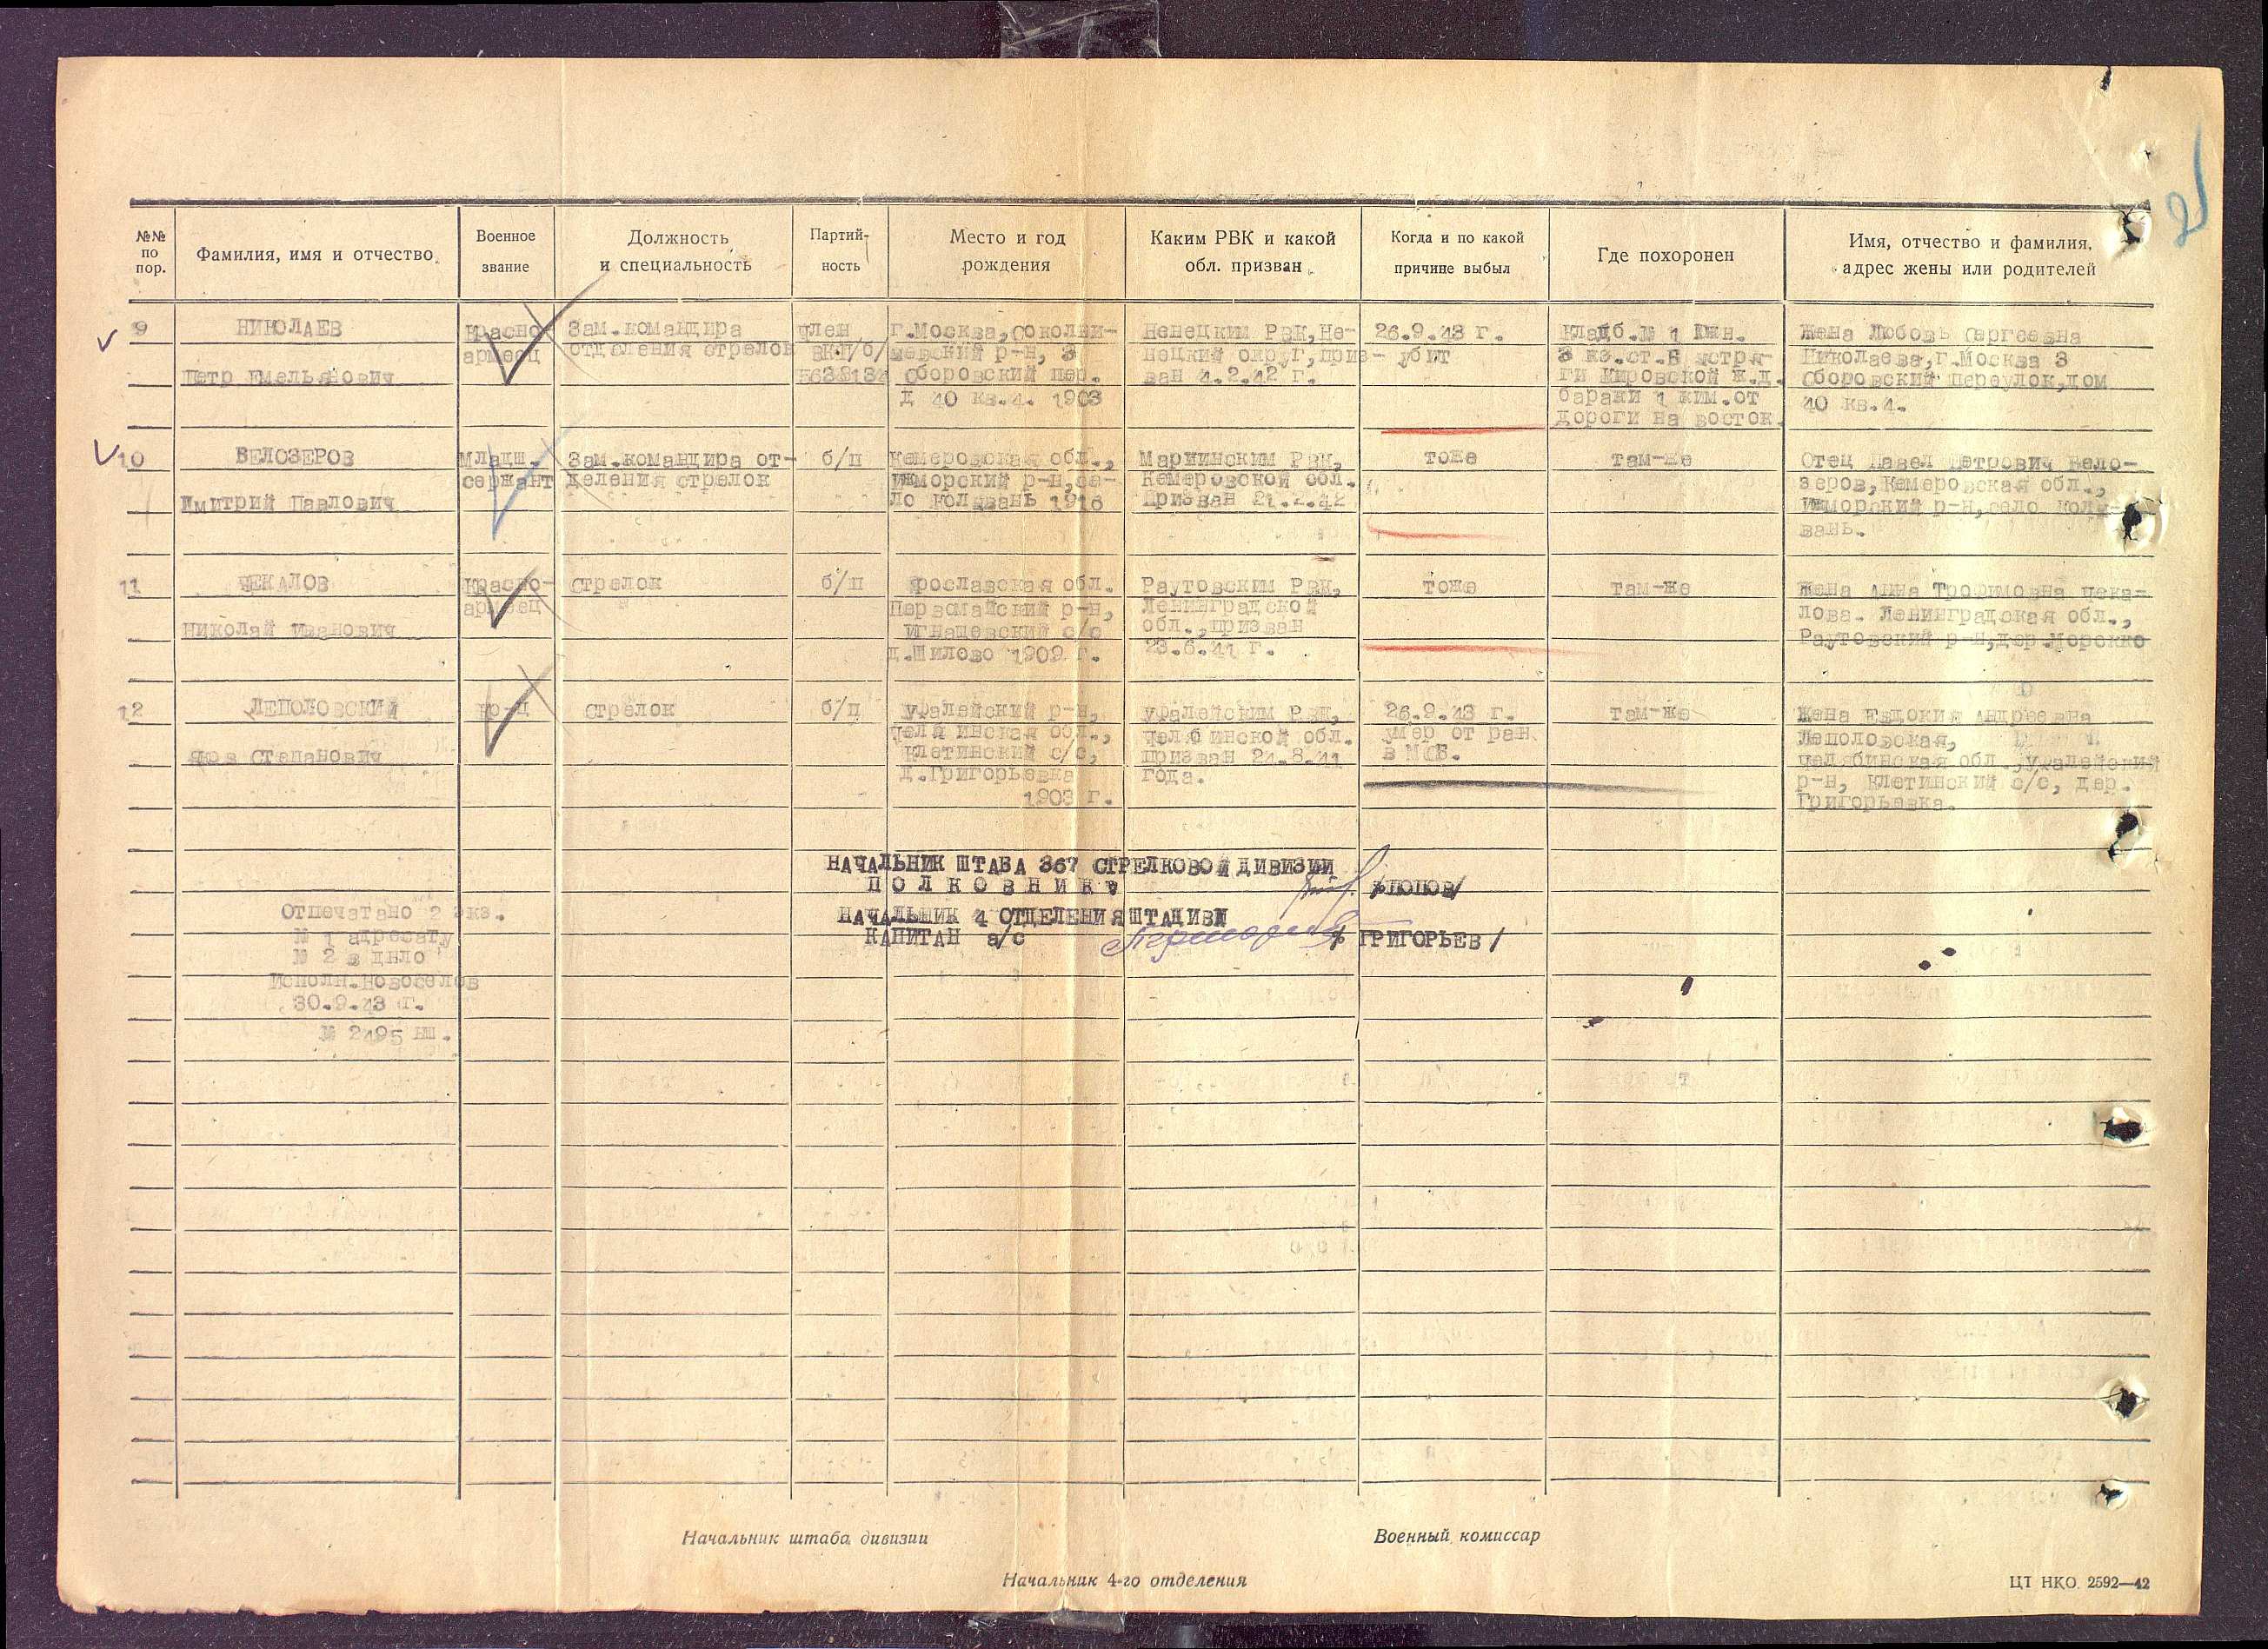 №№ по пор.
Фамилия, имя и отчество
Военное звание
Должность и специальность
Партий-ность
Место и год рождения
Каким РВК и какой обл. призван
Когда и по какой причине выбыл
Где похоронен
Имя, отчество и фамилия, адрес жены или родителей
9
НИКОЛАЕВ
Петр Емельянович
Красно-
армеец
Зам.командира
отделения стрелок
член
ВКП/б/
г.Москва,Соколни-
ческий р-н, 3
Сборовский пер.
д 40 кв.4. 1903
Ненецким РВК,Не-
нецкий округ,приз-
ван 4.2.42 г.
26.9.43 г.
убит
Кладб.№ 1 Южн.
ги Кировской ж.д.
бараки 1 клм.от
дороги на восток.
Жена Любовь Сергеевна
Николаева,г.Москва 3
Сборовский переулок,дом
40 кв.4.
10
БЕЛОЗЕРОВ
Дмитрий Павлович
Младш.
сержант
Зам.командира от-
деления стрелок
б/п
Кемеровская обл.,
Ижморский р-н,се-
ло Колывань 1916
Мариинским РВК,
Кемеровской обл.
Призван 21.2.42
тоже
там-же
Отец Павел Петрович Бело-
зеров,Кемеровская обл.,
Ижморский р-н,село Колы-
вань.
11
ЧЕКАЛОВ
Николай Иванович
Красно-
армеец
стрелок
б/п
Ярославская обл.
Первомайский р-н,
Игнашевский с/с
д.Шилово 1909 г.
Раутовским РВК,
Ленинградской
обл.,призван
23.6.41 г.
тоже
там-же
Жена Анна Трофимовна Чека-
лова. Ленинградская обл.,
Раутовский р-н,дер.Морокко
12
ЛЕПОЛОВСКИЙ
Яков Степанович
кр-ц
стрелок
б/п
Уфалейский р-н,
Клетинский с/с,
д.Григорьевка
1903 г.
Уфалейским РВК,
Челябинской обл.
призван 24.8.41
года.
26.9.43 г.
умер от ран
в МСБ.
там-же
Жена Евдокия Андреевна
Леполовская,
Челябинская обл.,Уфалейский
р-н, Клетинский с/с, дер.
Григорьевка.
НАЧАЛЬНИК ШТАБА 367 СТРЕЛКОВОЙ ДИВИЗИИ
ПОЛКОВНИК /ПОПОВ/
НАЧАЛЬНИК 4 ОТДЕЛЕНИЯ ШТАДИВА
КАПИТАН а/с /ГРИГОРЬЕВ/
Отпечатано 2 экз.
№ 1 адресату
№ 2 в дело
Исполн.Новоселов
30.9.43 г.
№ 2495 нш.
Начальник штаба дивизии
Военный комиссар
Начальник 4-го отделения
ЦТ НКО 2592—42